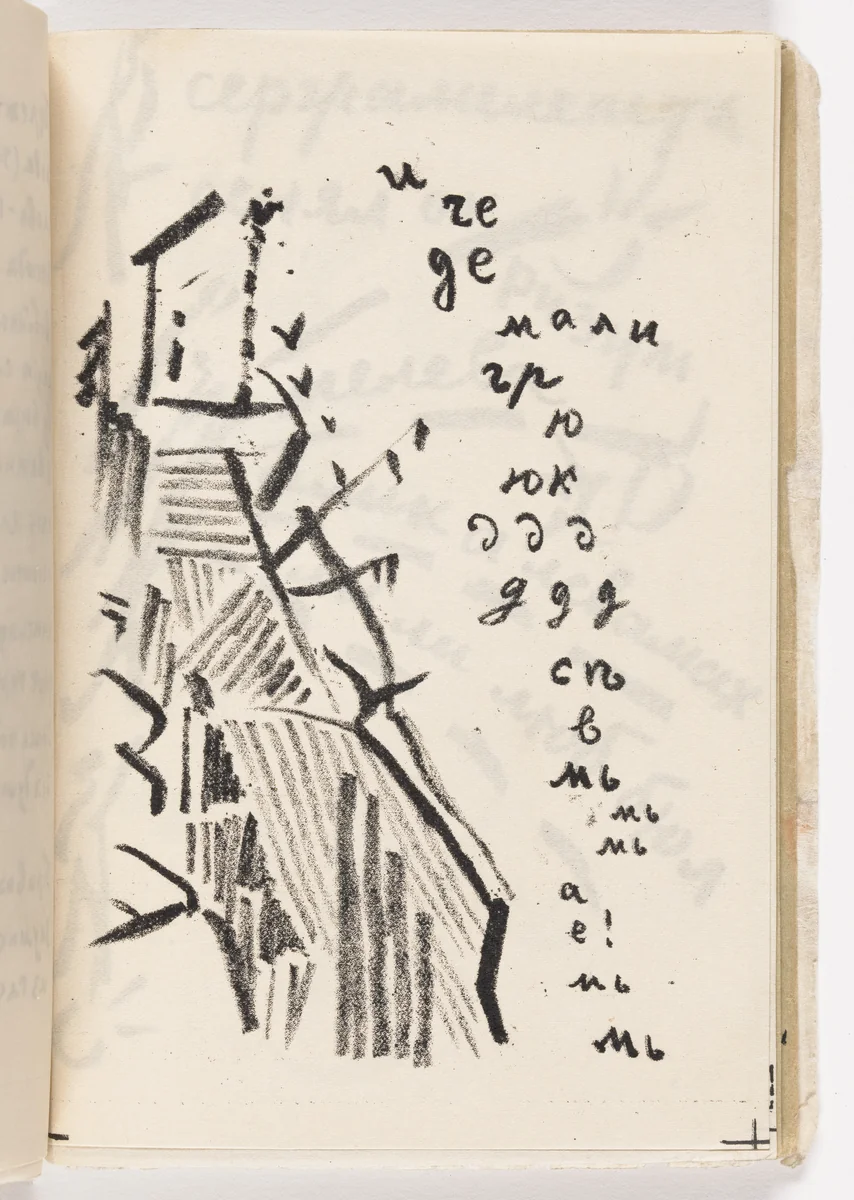 и
че
де
мали
гр
ю
юк
д д д
д д д
сп
в
мь
мь
мь
а
е!
мь